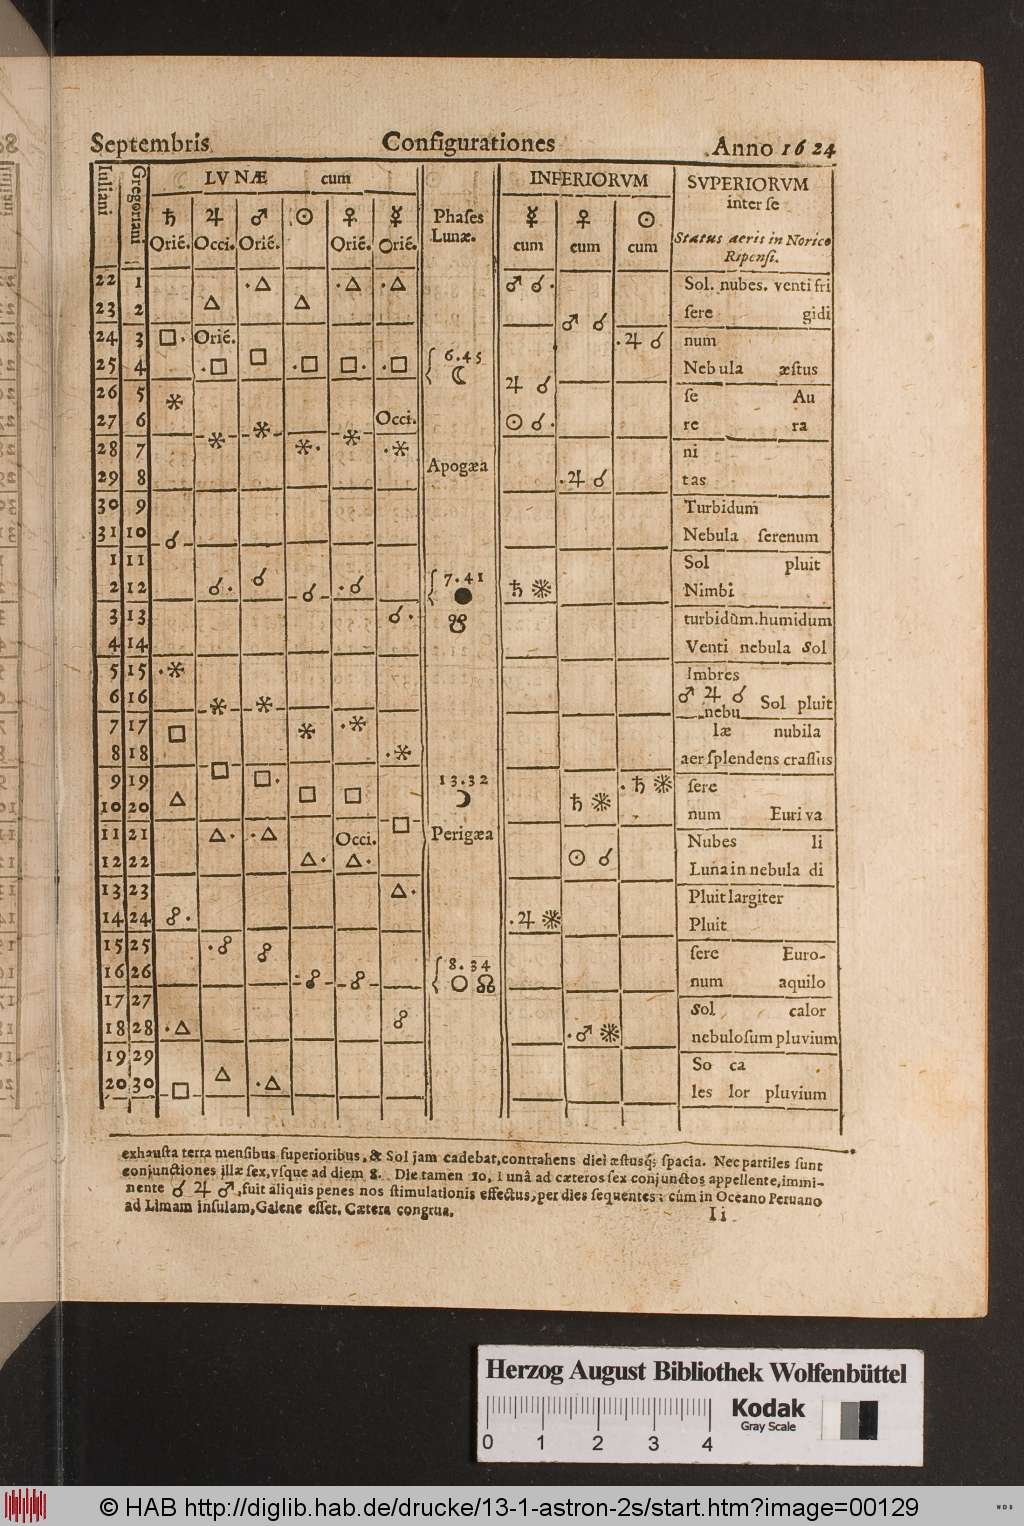 Septembris Configurationes Anno 1624
Iuliani Gregoriani LVNÆ cum Phases Lunæ. INFERIORVM SVPERIORVM
inter se
♄ ♃ ♂ ☉ ♀ ☿ ☿ ♀ ☉
Orié. Occi. Orié. Orié. Orié. cum cum cum Status aeris in Norico
Ripensi.
22 1 .△ .△ .△ ♂ ☌. Sol. nubes. venti fri
23 2 △ △ ♂ ☌ sere gidi
24 3 □. Orié. .♃ ☌ num
25 4 .□ □ .□ □. .□ 6.45 ☾ ♃ ☌ Nebula æstus
26 5 ⚹ se Au
27 6 ⚹ ⚹ ⚹ Occi. ☉ ☌. re ra
28 7 ⚹. .⚹ Apogæa ni
29 8 .♃ ☌ tas
30 9 Turbidum
31 10 ☌ Nebula serenum
1 11 Sol pluit
2 12 ☌. ☌ ☌ .☌ 7.41 ● ♄ ⚹ Nimbi
3 13 ☌. ☋ turbidũm. humidum
4 14 Venti nebula Sol
5 15 .⚹ Imbres
6 16 ⚹ ⚹ ♂ ♃ ☌ Sol pluit
nebu
7 17 □ ⚹ .⚹ læ nubila
8 18 .⚹ aer splendens crassus
9 19 □ □. 13.32 .♄ ⚹ sere
10 20 △ □ □ ☽ ♄ ⚹ num Euri va
11 21 △. .△ Occi. □ Perigæa Nubes li
12 22 △. △. ☉ ☌ Luna in nebula di
13 23 △. Pluit largiter
14 24 ☍. .♃ ⚹ Pluit
15 25 .☍ ☍ sere Euro-
16 26 ☍ ☍ 8.34 ○ ☊ num aquilo
17 27 Sol calor
18 28 .△ ☍ .♂ ⚹ nebulosum pluvium
19 29 So ca
20 30 □ △ .△ les lor pluvium
exhausta terra mensibus superioribus, & Sol jam cadebat, contrahens diei æstusq; spacia. Nec partiles sunt
conjunctiones illæ sex, vsque ad diem 8. Die tamen 10. Lunâ ad cæteros sex conjunctos appellente, immi-
nente ☌ ♃ ♂, fuit aliquis penes nos stimulationis effectus, per dies sequentes: cúm in Oceano Peruano
ad Limam insulam, Galene esset. Cætera congrua.
Ii
Herzog August Bibliothek Wolfenbüttel
Kodak
Gray Scale
0 1 2 3 4
© HAB http://diglib.hab.de/drucke/13-1-astron-2s/start.htm?image=00129